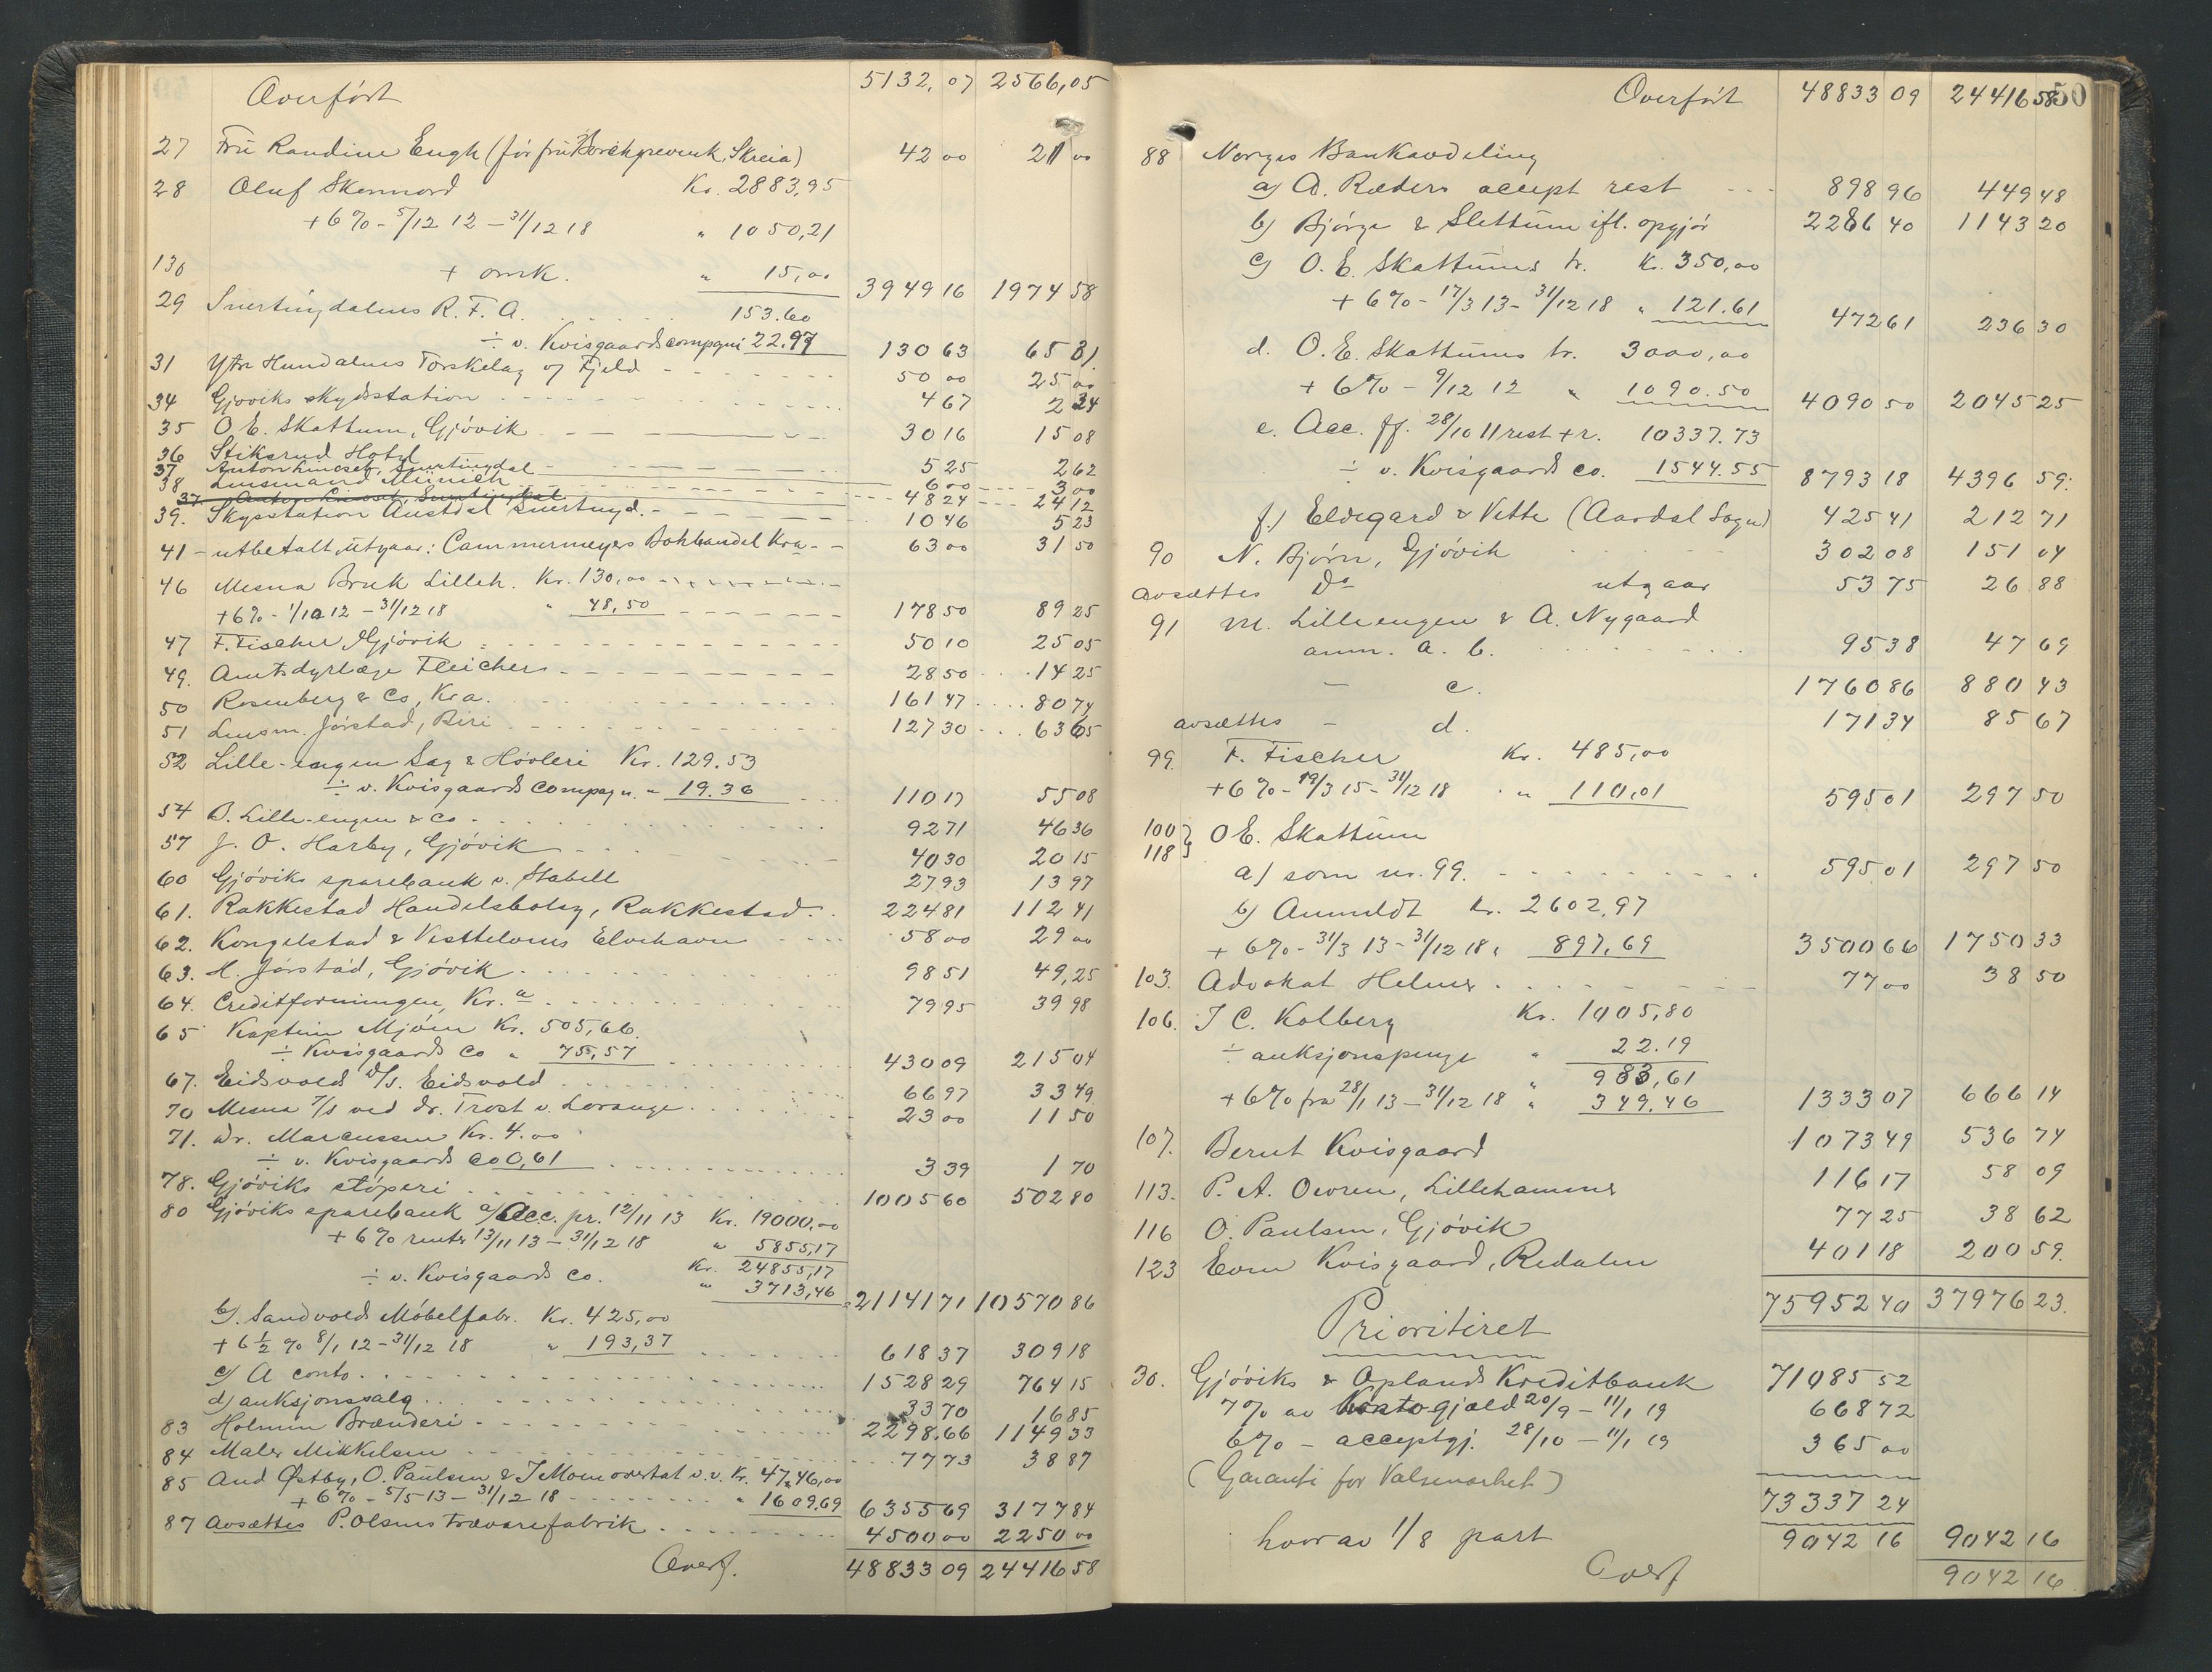 Overført 5132,07 2566,05
27 Fru Randine Engh (før fru Borchgrevink, Skreia) 42 00 21 00
28 Oluf Skonnord Kr. 2883,95
+ 6% - 5/12 12 - 31/12 18 " 1050,21
130 + omk. " 15,00 3949 16 1974 58
29 Snertingdalens R. F. A. 153.60
÷ v. Kvisgaards compagni 22.97 130 63 65 31
31 Ytre Hundalens Torskelag og Fjeld 50 00 25 00
34 Gjøviks skydsstation 4 67 2 34
35 O. E. Skattum, Gjøvik 30 16 15 08
36 Stiksrud Hotel 5 25 2 62
37 Anton Linoset, Snertingdal
38 Lensmand Münich 6 00 3 00
37 Anton Linoset, Snertingdal 48 24 24 12
39. Skysstation Austdal Snertingd. 10 46 5 23
41 - utbetalt, utgaar: Cammermeyers Bokhandel Kra 63 00 31 50
46 Mesna Bruk Lilleh. Kr. 130,00
+ 6% - 1/10 12 - 31/12 18 " 48,50 178 50 89 25
47 F. Fischer, Gjøvik 50 10 25 05
49. Amtsdyrlæge Fleicher 28 50 14 25
50 Rosenberg & Co, Kra. 161 47 80 74
51 Lensm. Jørstad, Biri 127 30 63 65
52 Lille-engen Sag & Høvleri Kr. 129.53
÷ v. Kvisgaards compagn. " 19.36 110 17 55 08
54 B. Lille-engen & Co 92 71 46 36
57 J. O. Harby, Gjøvik 40 30 20 15
60 Gjøviks sparebank v. Stabell 27 93 13 97
61. Rakkestad Handelsbolag, Rakkestad 224 81 112 41
62. Kongelstad & Vesttelornes Elvehavn 58 00 29 00
63. H. Jørstad, Gjøvik 98 51 49,25
64. Creditforeningen, Kr.a 79 95 39 98
65 Kaptein Mjøen Kr. 505,66
÷ Kvisgaards Co " 75,57 430 09 215 04
67. Eidsvolds D/S. Eidsvold 66 97 33 49
70 Mesna T/S ved dr. Trost v. Lorange 23 00 11 50
71. Dr. Marcussen Kr. 4.00
÷ v. Kvisgaards Co 0,61 3 39 1 70
78. Gjøviks støperi 1005 60 502 80
80 Gjøviks sparebank a/ Acc. pr. 12/11 13 Kr. 19000,00
+ 6% renter 13/11 13 - 31/12 18 " 5855,17
Kr. 24855,17
÷ v. Kvisgaards Co. " 3713,46 21141 71 10570 86
b). Sandvolds Møbelfabr. Kr. 425,00
+ 6 1/2 % 8/1 12 - 31/12 18 " 193,37 618 37 309 18
c) A conto 1528 29 764 15
d) auksjonssalg 33 70 16 85
83 Holmen Brænderi 2298.66 1149 33
84 Maler Mikkelsen 77 73 38 87
85 And Østby, O. Paulsen & J Moen overtat v. v. Kr. 4746,00
+ 6% - 5/5 13 - 31/12 18 " 1609.69 6355 69 3177 84
87 avsættes P. Olsens Trævarefabrik 4500 00 2250 00
Overf. 48833 09 24416 58
50
Overført 48833 09 24416 58
88 Norges Bankavdeling
a) A. Ræders accept rest 898 96 449 48
b) Bjørge & Slettum ifl. opgjør 2286 40 1143 20
c) O. E. Skattums tr. Kr. 350,00
+ 6% - 17/3 13 - 31/12 18 " 121.61 472 61 236 30
d. O. E. Skattums tr. 3000,00
+ 6% - 9/12 12 " 1090.50 4090 50 2045 25
e. Acc. ff. 28/10 11 rest + r. 10337.73
÷ v. Kvisgaards Co. 1544.55 8793 18 4396 59.
f.) Eldegard & Vette (Aardal Sogn) 425 41 212 71
90 N. Bjørn, Gjøvik 302 08 151 04
avsættes Do utgaar 53 75 26 88
91 M. Lilleengen & A. Nygaard
anm. a. b. 95 38 47 69
- c. 1760 86 880 43
avsættes - d. 171 34 85 67
99. F. Fischer Kr. 485,00
+ 6% - 19/3 15 - 31/12 18 " 110,01 595 01 297 50
100 } O E. Skattum
118
a) som nr. 99. 595 01 297 50
b) Anmeldt Kr. 2602,97
+ 6% - 31/3 13 - 31/12 18 " 897,69 3500 66 1750 33
103. Advokat Helmer 77 00 38 50
106. J C. Kolberg Kr. 1005,80
÷ auksjonspenge " 22.19
" 983,61
+ 6% fra 28/1 13 - 31/12 18 " 349.46 1333 07 666 14
107. Bernt Kvisgaard 1073 49 536 74
113. P. A. Owren, Lillehammer 116 17 58 09
116 O. Paulsen, Gjøvik 77 25 38 62
123 Even Kvisgaard, Redalen 401 18 200 59.
75952 40 37976 23.
Prioritiret
30. Gjøviks & Oplands Kreditbank 71085 52
7% av Kontogjæld 20/9 - 11/1 19 668 72
6% - acceptgj. 28/10 - 11/1 19 365 00
(Garanti for Valsenværket)
73337 24
hvorav 1/8 part 9042 16 9042 16
Overf 9042 16